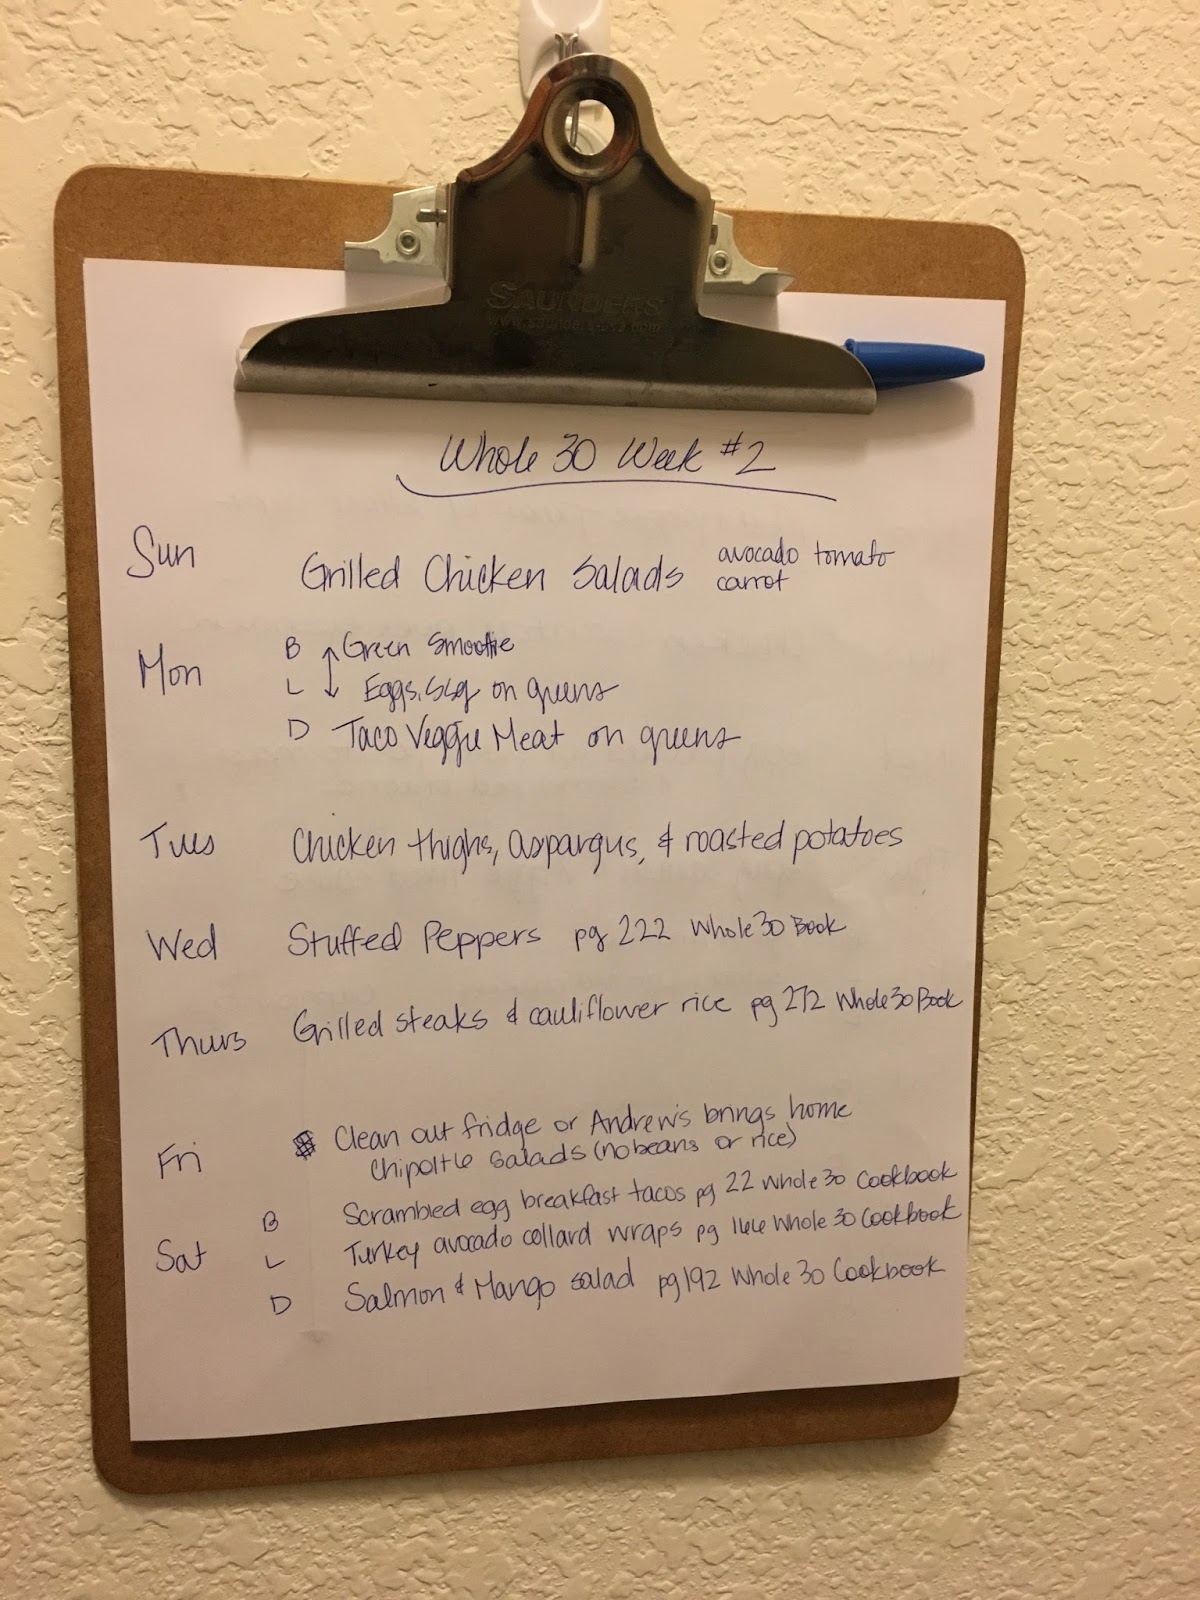 SAUNDERS
www.saunders-usa.com
Whole 30 Week #2
Sun Grilled Chicken Salads avocado tomato
carrot
Mon B Green Smoothie
L Eggs, on greens
D Taco Veggie Meat on greens
Tues Chicken thighs, aspargus, & roasted potatoes
Wed Stuffed Peppers pg 222 Whole 30 Book
Thurs Grilled steaks & cauliflower rice pg 272 Whole 30 Book
Fri Clean out fridge or Andrew's brings home
Chipoltle salads (no beans or rice)
Sat B Scrambled egg breakfast tacos pg 22 Whole 30 Cookbook
L Turkey avocado collard wraps pg 166 Whole 30 Cookbook
D Salmon & Mango salad pg 192 Whole 30 Cookbook